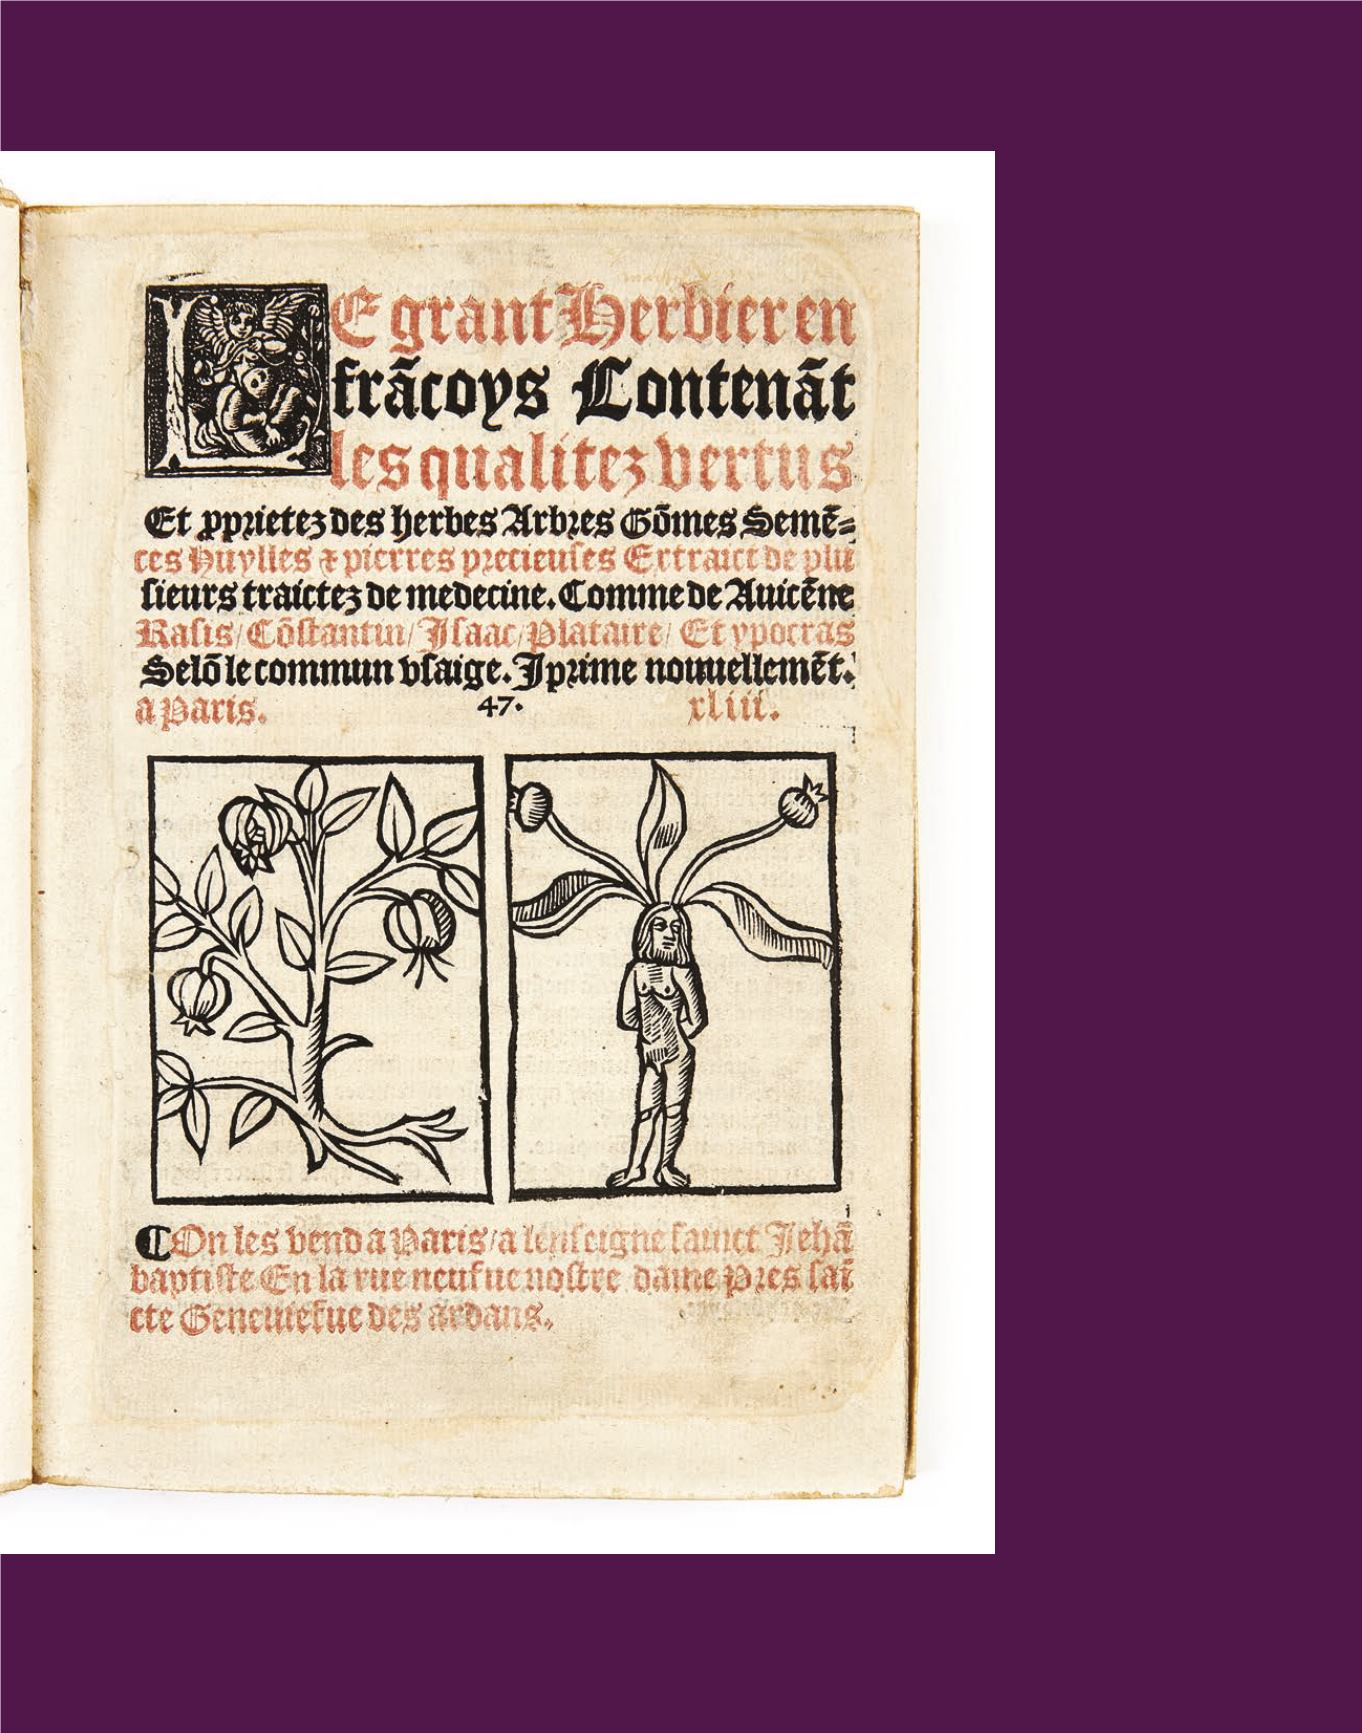 LE grant Herbier en
frãcoys Contenãt
les qualitez vertus
Et ꝓprietez des herbes Arbres Gõmes Semẽ=
ces Huylles ⁊ pierres precieuſes Extraict de plu
ſieurs traictez de medecine. Comme de Auicẽne
Raſis/ Cõſtantin/ Iſaac/ Plataire/ Et ypocras
Selõ le commun vſaige. Iprime nouuellemẽt.
a Paris. 47. xliii.
COn les vend a Paris/ a lenſeigne ſainct Jehã
baptiſte En la rue neufue noſtre dame Pres ſaĩ
cte Geneuiefue des ardans.